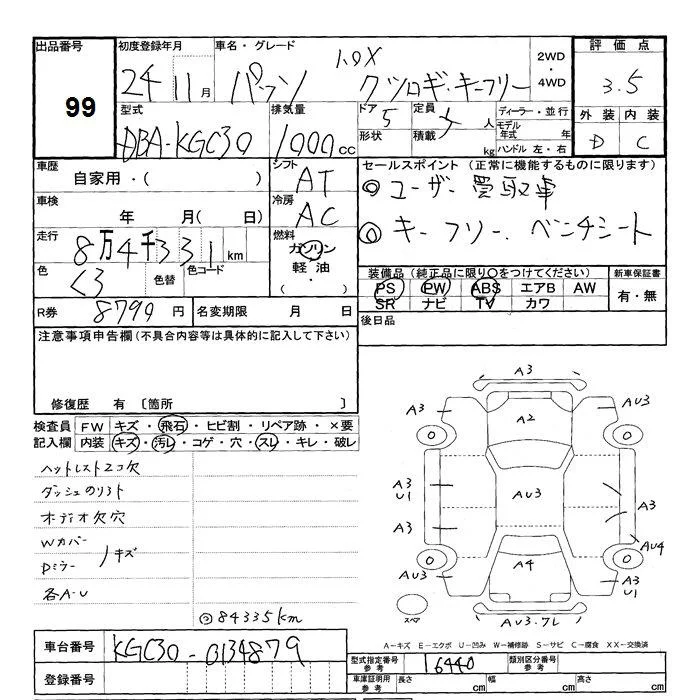 出品番号 99
初度登録年月 24 11月
車名・グレード パッソ 1.0X クツロギ・キーフリー
2WD・4WD
評価点 3.5
外装 D 内装 C
型式 DBA-KGC30
排気量 1000cc
ドア 5 形状
定員 人 積載 kg
ディーラー・並行
モデル年式 年
ハンドル 左・右
車歴 自家用・( )
シフト AT
車検 年 月(日)
冷房 AC
走行 8万4千331km
燃料 ガソリン・軽油・( )
色 色替 色コード
R券 8790円
名変期限 月 日
セールスポイント(正常に機能するものに限ります)
◎ユーザー買取車
◎キーフリー.ベンチシート
装備品(純正品に限り○をつけてください)
PS PW ABS エアB AW
SR ナビ TV カワ
新車保証書 有・無
後日品
注意事項申告欄(不具合内容等は具体的に記入して下さい)
修復歴 有 〔箇所 〕
検査員記入欄
FW キズ・飛石・ヒビ割・リペア跡・×要
内装 キズ・汚レ・コゲ・穴・スレ・キレ・破レ
ヘッドレスト2コ欠
ダッシュのリフト
オーディオ欠穴
Wカバー
Dミラー
キズ
各A-U
◎84335km
A3
A3 A2 AU3
A3 U1 AU3 A3
A3 AU4
AU3 A4 A3 U1
スペア
AU3.フレ
A-キズ E-エクボ U-凹み W-補修跡 S-サビ C-腐食 XX-交換済
車台番号 KGC30-0134879
登録番号
型式指定番号 参考 16440
類別区分番号 参考
車庫証明用 参考 長さ cm 幅 cm 高さ cm